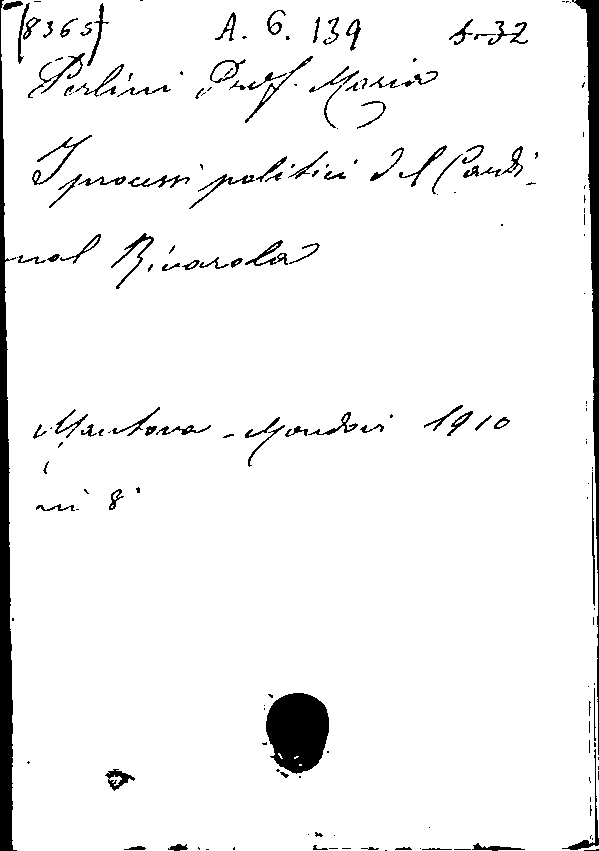 (8365) A. G. 139 5-32
Perlini Prof. Maria
I processi politici del Cardi-
nal Rivarola
Mantova - Mondovi 1910
in 8°